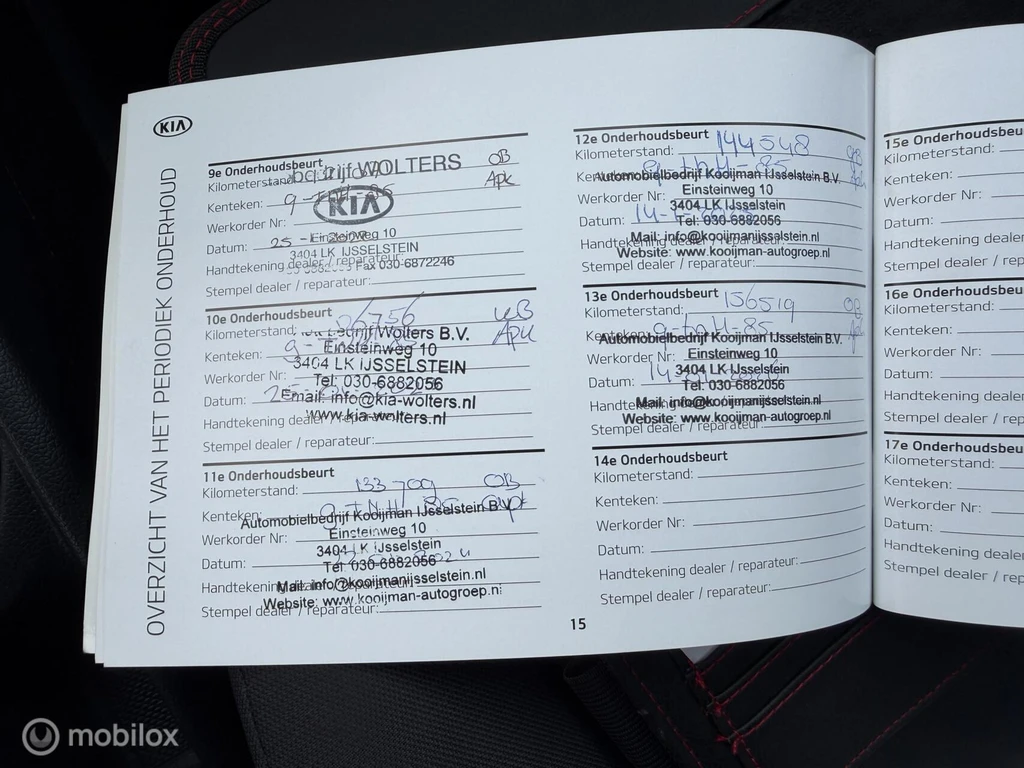 KIA
OVERZICHT VAN HET PERIODIEK ONDERHOUD
9e Onderhoudsbeurt
bedrijf WOLTERS
OB
Kilometerstand:
Kenteken:
APK
KIA
Werkorder Nr:
Einsteinweg 10
Datum: 25 -
3404 LK IJSSELSTEIN
Handtekening dealer / reparateur:
Fax 030-6872246
Stempel dealer / reparateur:
10e Onderhoudsbeurt
Kilometerstand:
bedrijf Wolters B.V.
Kenteken:
APK
Einsteinweg 10
Werkorder Nr:
3404 LK IJSSELSTEIN
Tel: 030-6882056
Datum:
Email: info@kia-wolters.nl
Handtekening dealer / reparateur:
www.kia-wolters.nl
Stempel dealer / reparateur:
11e Onderhoudsbeurt
Kilometerstand: 133709 OB
Kenteken:
Automobielbedrijf Kooijman IJsselstein B.V.
Werkorder Nr:
Einsteinweg 10
3404 LK IJsselstein
Datum:
Tel: 030-6882056
Handtekening dealer / reparateur:
Mail: info@kooijmanijsselstein.nl
Website: www.kooijman-autogroep.nl
Stempel dealer / reparateur:
12e Onderhoudsbeurt
Kilometerstand: 144548
Kenteken:
Automobielbedrijf Kooijman IJsselstein B.V.
Einsteinweg 10
Werkorder Nr:
3404 LK IJsselstein
Datum: 14-
Tel: 030-6882056
Handtekening dealer / reparateur:
Mail: info@kooijmanijsselstein.nl
Website: www.kooijman-autogroep.nl
Stempel dealer / reparateur:
13e Onderhoudsbeurt
Kilometerstand: 156519 OB
Kenteken:
Automobielbedrijf Kooijman IJsselstein B.V.
Werkorder Nr:
Einsteinweg 10
3404 LK IJsselstein
Datum: 14-
Tel: 030-6882056
Handtekening dealer / reparateur:
Mail: info@kooijmanijsselstein.nl
Website: www.kooijman-autogroep.nl
Stempel dealer / reparateur:
14e Onderhoudsbeurt
Kilometerstand:
Kenteken:
Werkorder Nr:
Datum:
Handtekening dealer / reparateur:
Stempel dealer / reparateur:
15
15e Onderhoudsbeu
Kilometerstand:
Kenteken:
Werkorder Nr:
Datum:
Handtekening dealer
Stempel dealer / rep
16e Onderhoudsbeu
Kilometerstand:
Kenteken:
Werkorder Nr:
Datum:
Handtekening deale
Stempel dealer / rep
17e Onderhoudsbe
Kilometerstand:
Kenteken:
Werkorder Nr:
Datum:
Handtekening deale
Stempel dealer / re
mobilox